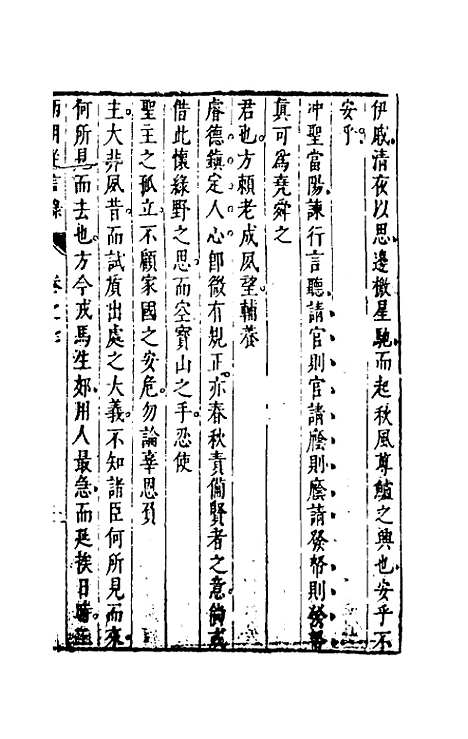 伊戚清夜以思邊檄星馳而起秋風尊鱸之興也安乎不
安乎
冲聖當陽諫行言聽請官則官請廕則廕請發帑則發帑
真可爲堯舜之
君也方賴老成夙望輔養
睿德鎮定人心卽微有規正亦春秋責備賢者之意倘或
借此懷綠野之思而空寶山之手忍使
聖主之孤立不顧家國之安危勿論辜恩負
主大非夙昔而試質出處之大義不知諸臣何所見而來
何所見而去也方今戎馬生郊用人最急而延挨日時
兩朝從信錄 卷之七